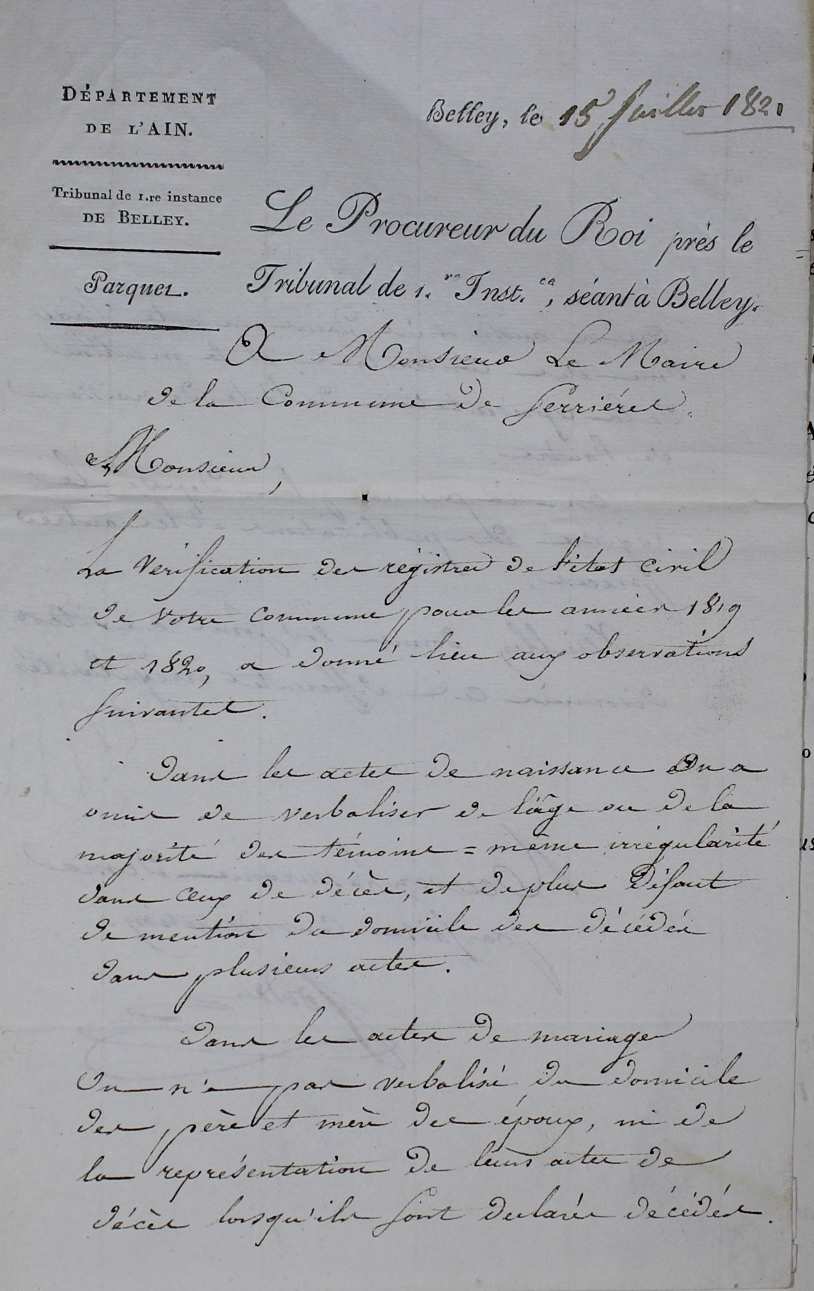 DÉPARTEMENT
DE L'AIN.
Tribunal de 1.re instance
DE BELLEY.
Parquet.
Belley, le 15 Juillet 1821
Le Procureur du Roi près le
Tribunal de 1.re Inst.ce, séant à Belley.
A Monsieur Le Maire
de la Commune de Serriéres.
Monsieur,
La verification des régistres de l'état civil
de votre commune pour les années 1819
et 1820, a donné lieu aux observations
suivantes.
Dans les actes de naissance On a
omis de verbaliser de l'âge ou de la
majorité des témoins = même irrégularité
dans ceux de décès, et de plus Défaut
de mention du domicile des décédés
dans plusieurs actes.
Dans les actes de mariage
On n'a pas verbalisé du domicile
des père et mère des époux, ni de
la représentation de leurs actes de
décès lorsqu'ils sont declarés décédés.